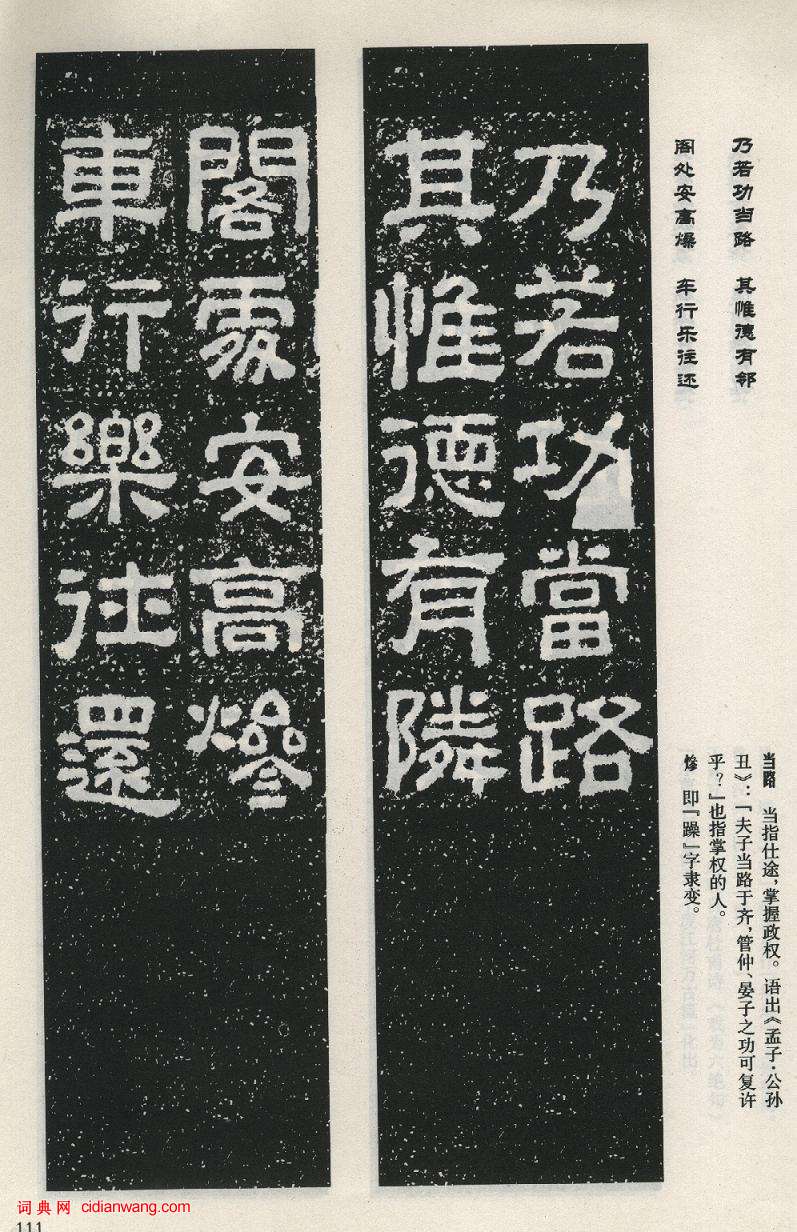 乃若功当路　其惟德有邻
阁处安高燥　车行乐往还
当路　当指仕途，掌握政权。语出《孟子·公孙
丑》：「夫子当路于齐，管仲、晏子之功可复许
乎？」也指掌权的人。
㷮　即「躁」字隶变。
乃若功當路
其惟德有隣
閣處安高㷮
車行樂往還
词典网 cidianwang.com
111